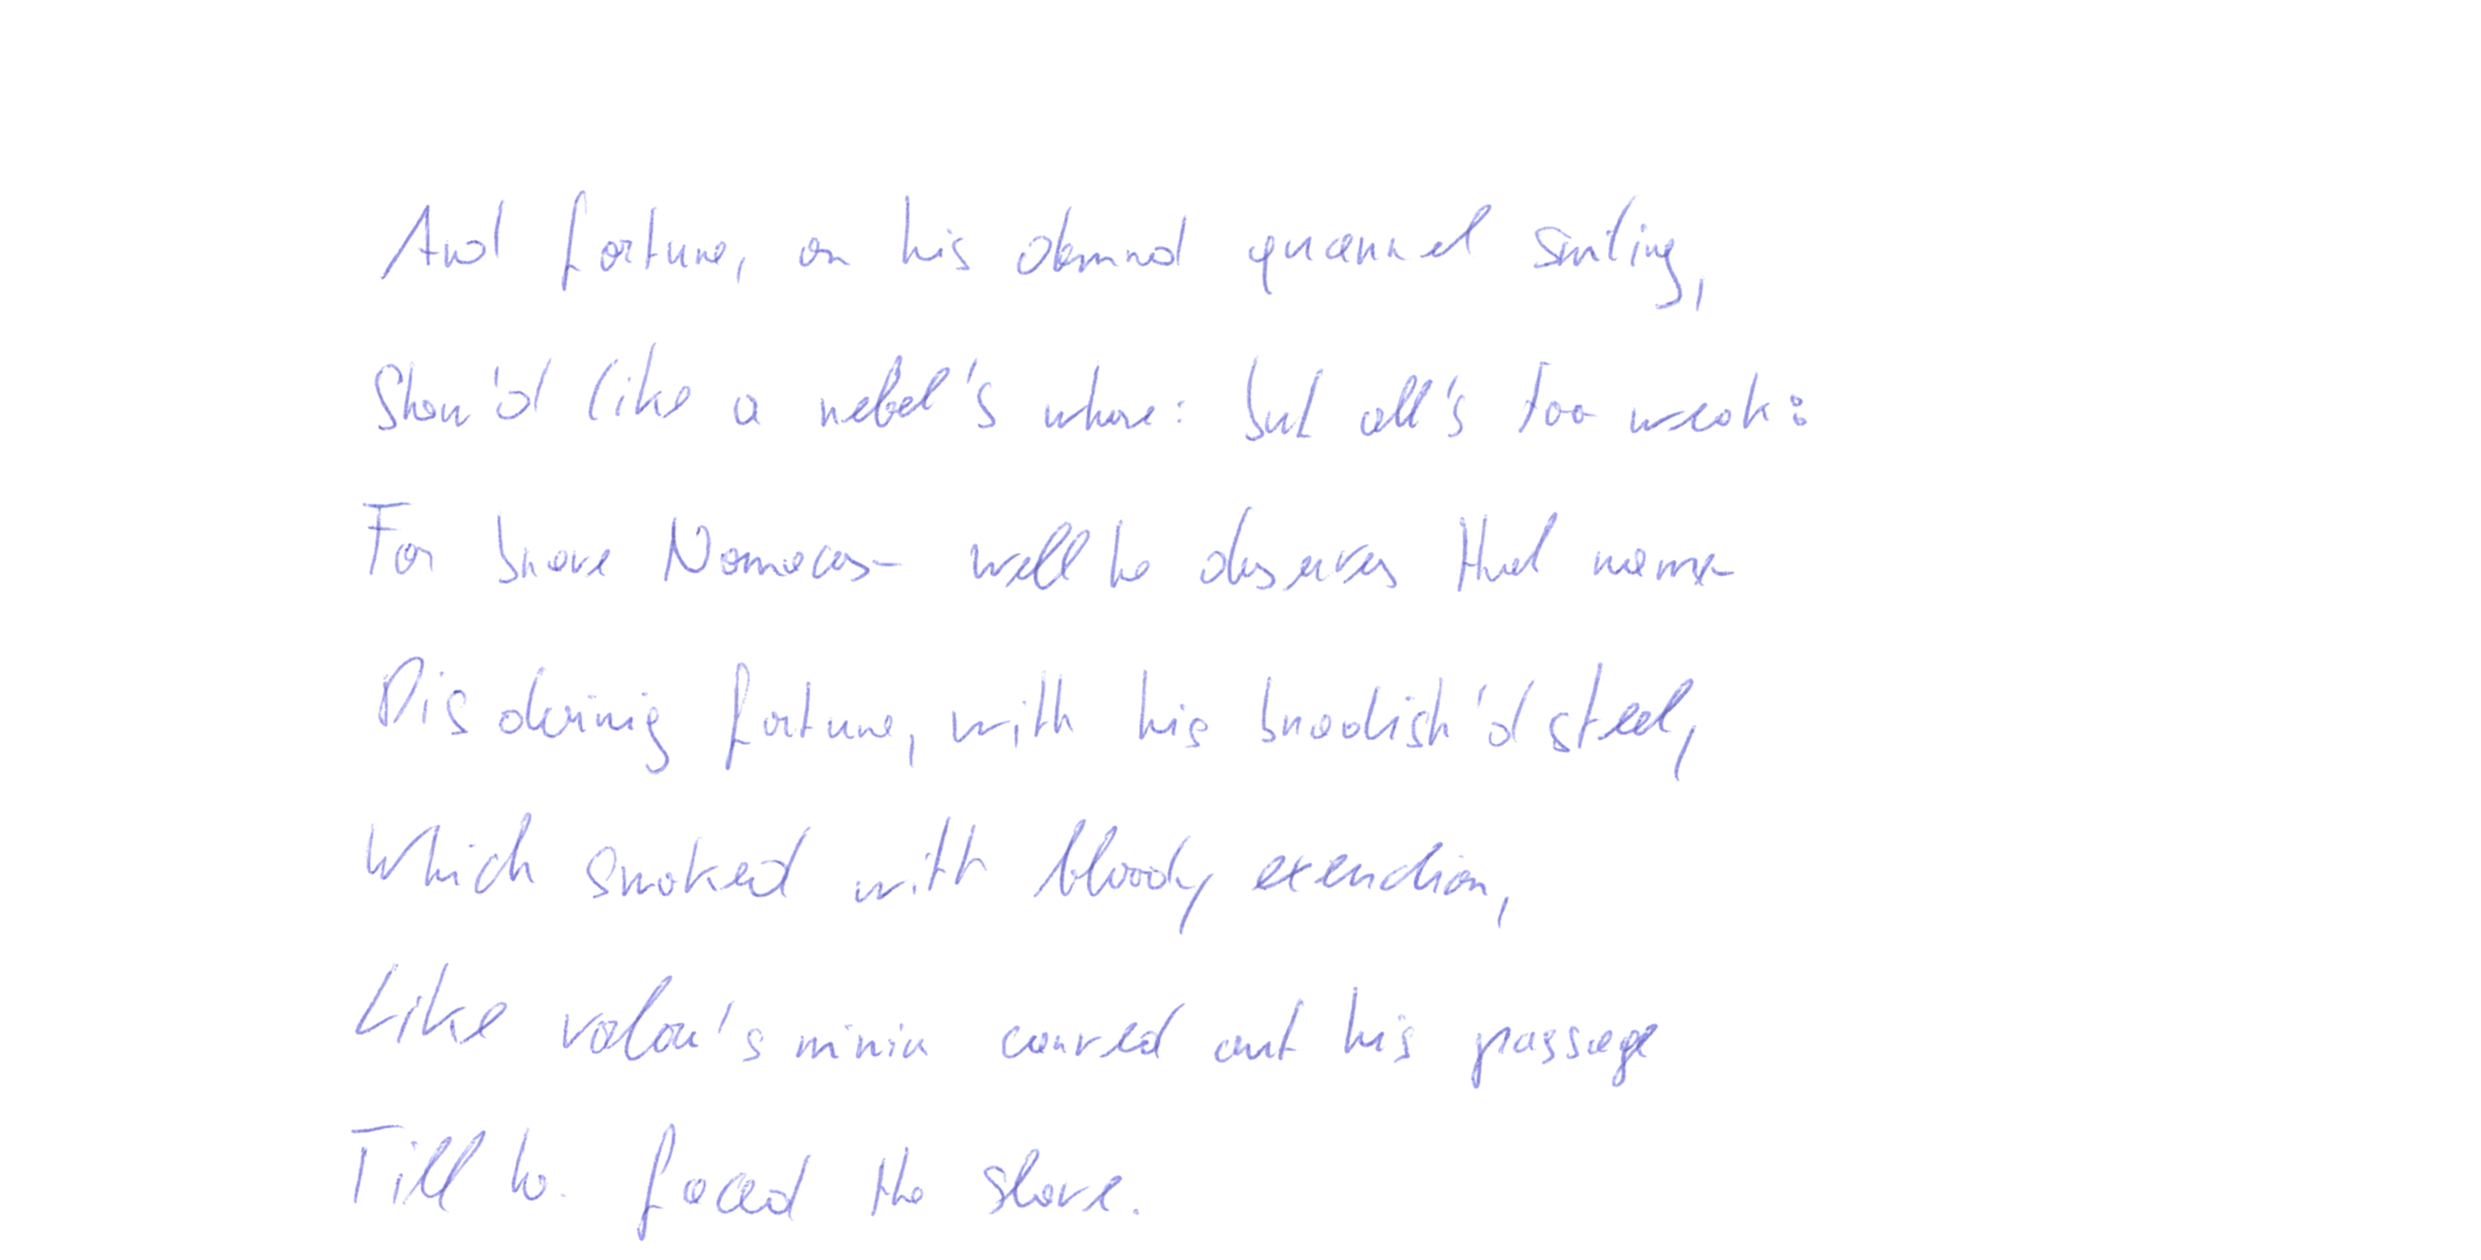 And fortune, on his damned quarrel smiling,
Show'd like a rebel's whore: but all's too weak:
For brave Nomacas- well he deserves that name-
Disdaining fortune, with his brandish'd steel,
Which smoked with bloody execution,
Like valour's minion carved out his passage
Till he faced the slave.